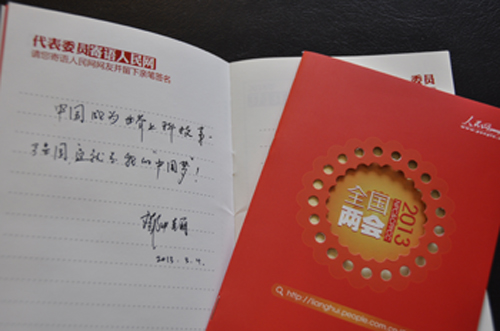 代表委员寄语人民网
请您寄语人民网网友并留下亲笔签名
中国成为世界上科
国应就是我的"中国梦"!
2013.3.4.
代表委员
人民网
全国
两会
2013
http://lianghui.people.com.cn